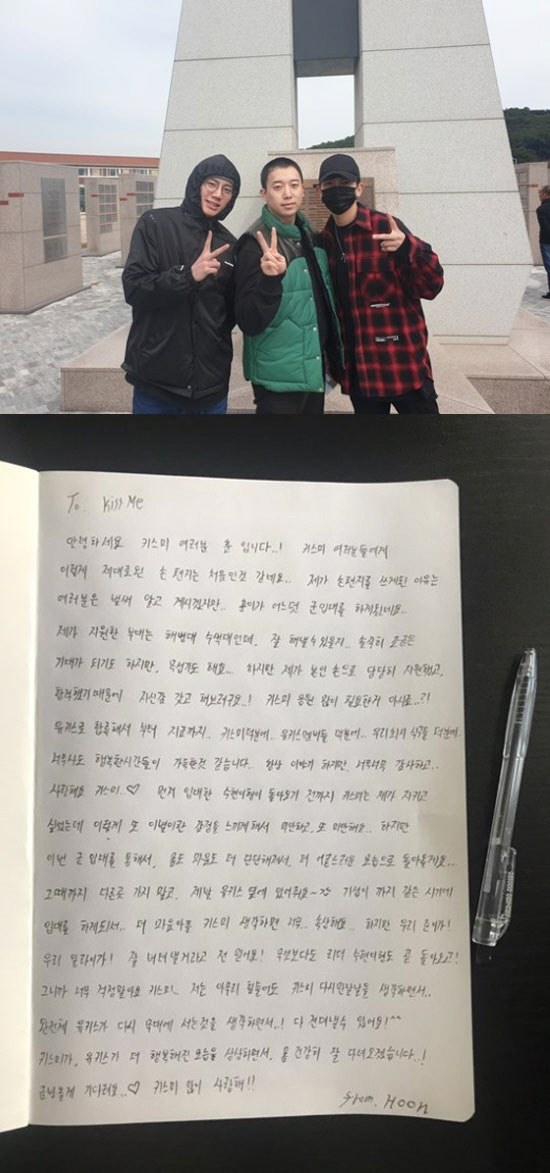 To. kiss Me
안녕하세요 키스미 여러분 훈 입니다..! 키스미 여러분들에게
이렇게 제대로된 손편지는 처음인것 같네요.. 제가 손편지를 쓰게된 이유는
여러분은 벌써 알고 계시겠지만.. 훈이가 어느덧 군입대를 하게됐네요..
제가 지원한 부대는 해병대 수색대인데, 잘 해낼수있을지.. 솔직히 조금은
기대가 되기도 하지만, 무섭기도 해요... 하지만 제가 본인 손으로 당당히 지원했고,
합격했기때문에 자신감 갖고 해보려구요..! 키스미 응원 많이 필요한거 아시죠..?!
유키스로 합류해서 부터 지금까지.. 키스미덕분에.. 유키스멤버들 덕분에.. 우리회사 식구들 덕분에..
너무나도 행복한시간들이 가득한것 같습니다.. 항상 이야기 하지만, 너무너무 감사하고..
사랑해요 키스미.♡ 먼저 입대한 수현이형이 돌아오기 전까지 키스미는 제가 지키고
싶었는데 이렇게 또 이별이란 감정을 느끼게해서 미안하고, 또 미안해요.. 하지만
이번 군입대를 통해서, 몸도 마음도 더 단단해져서, 더 어른스러운 모습으로 돌아올게요...
그때까지 다른곳 가지 말고, 제발 유키스 옆에 있어줘요~ 기섭이 까지 같은 시기에
입대를 하게되서.. 더 마음아플 키스미 생각하면 너무.. 속상해요.. 하지만 우리 준이가!
우리 일라이가! 잘 버텨낼거라고 전 믿어요! 무엇보다도 리더 수현이형도 곧 돌아오고!
그니까 너무 걱정말아요 키스미.. 저는 아무리 힘들어도 키스미 다시만날날을 생각하면서..
완전체 유키스가 다시 무대에 서는것을 생각하면서..! 다 견뎌낼수 있어요!^^
키스미가, 유키스가 더 행복해진 모습을 상상하면서, 몸 건강히 잘 다녀오겠습니다..!
조금만 기다려요..♡ 키스미 많이 사랑해!!
from. Hoon